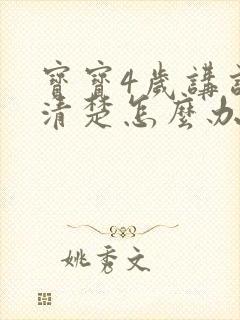 寶寶4歲講話
清楚怎麼办
姚秀文